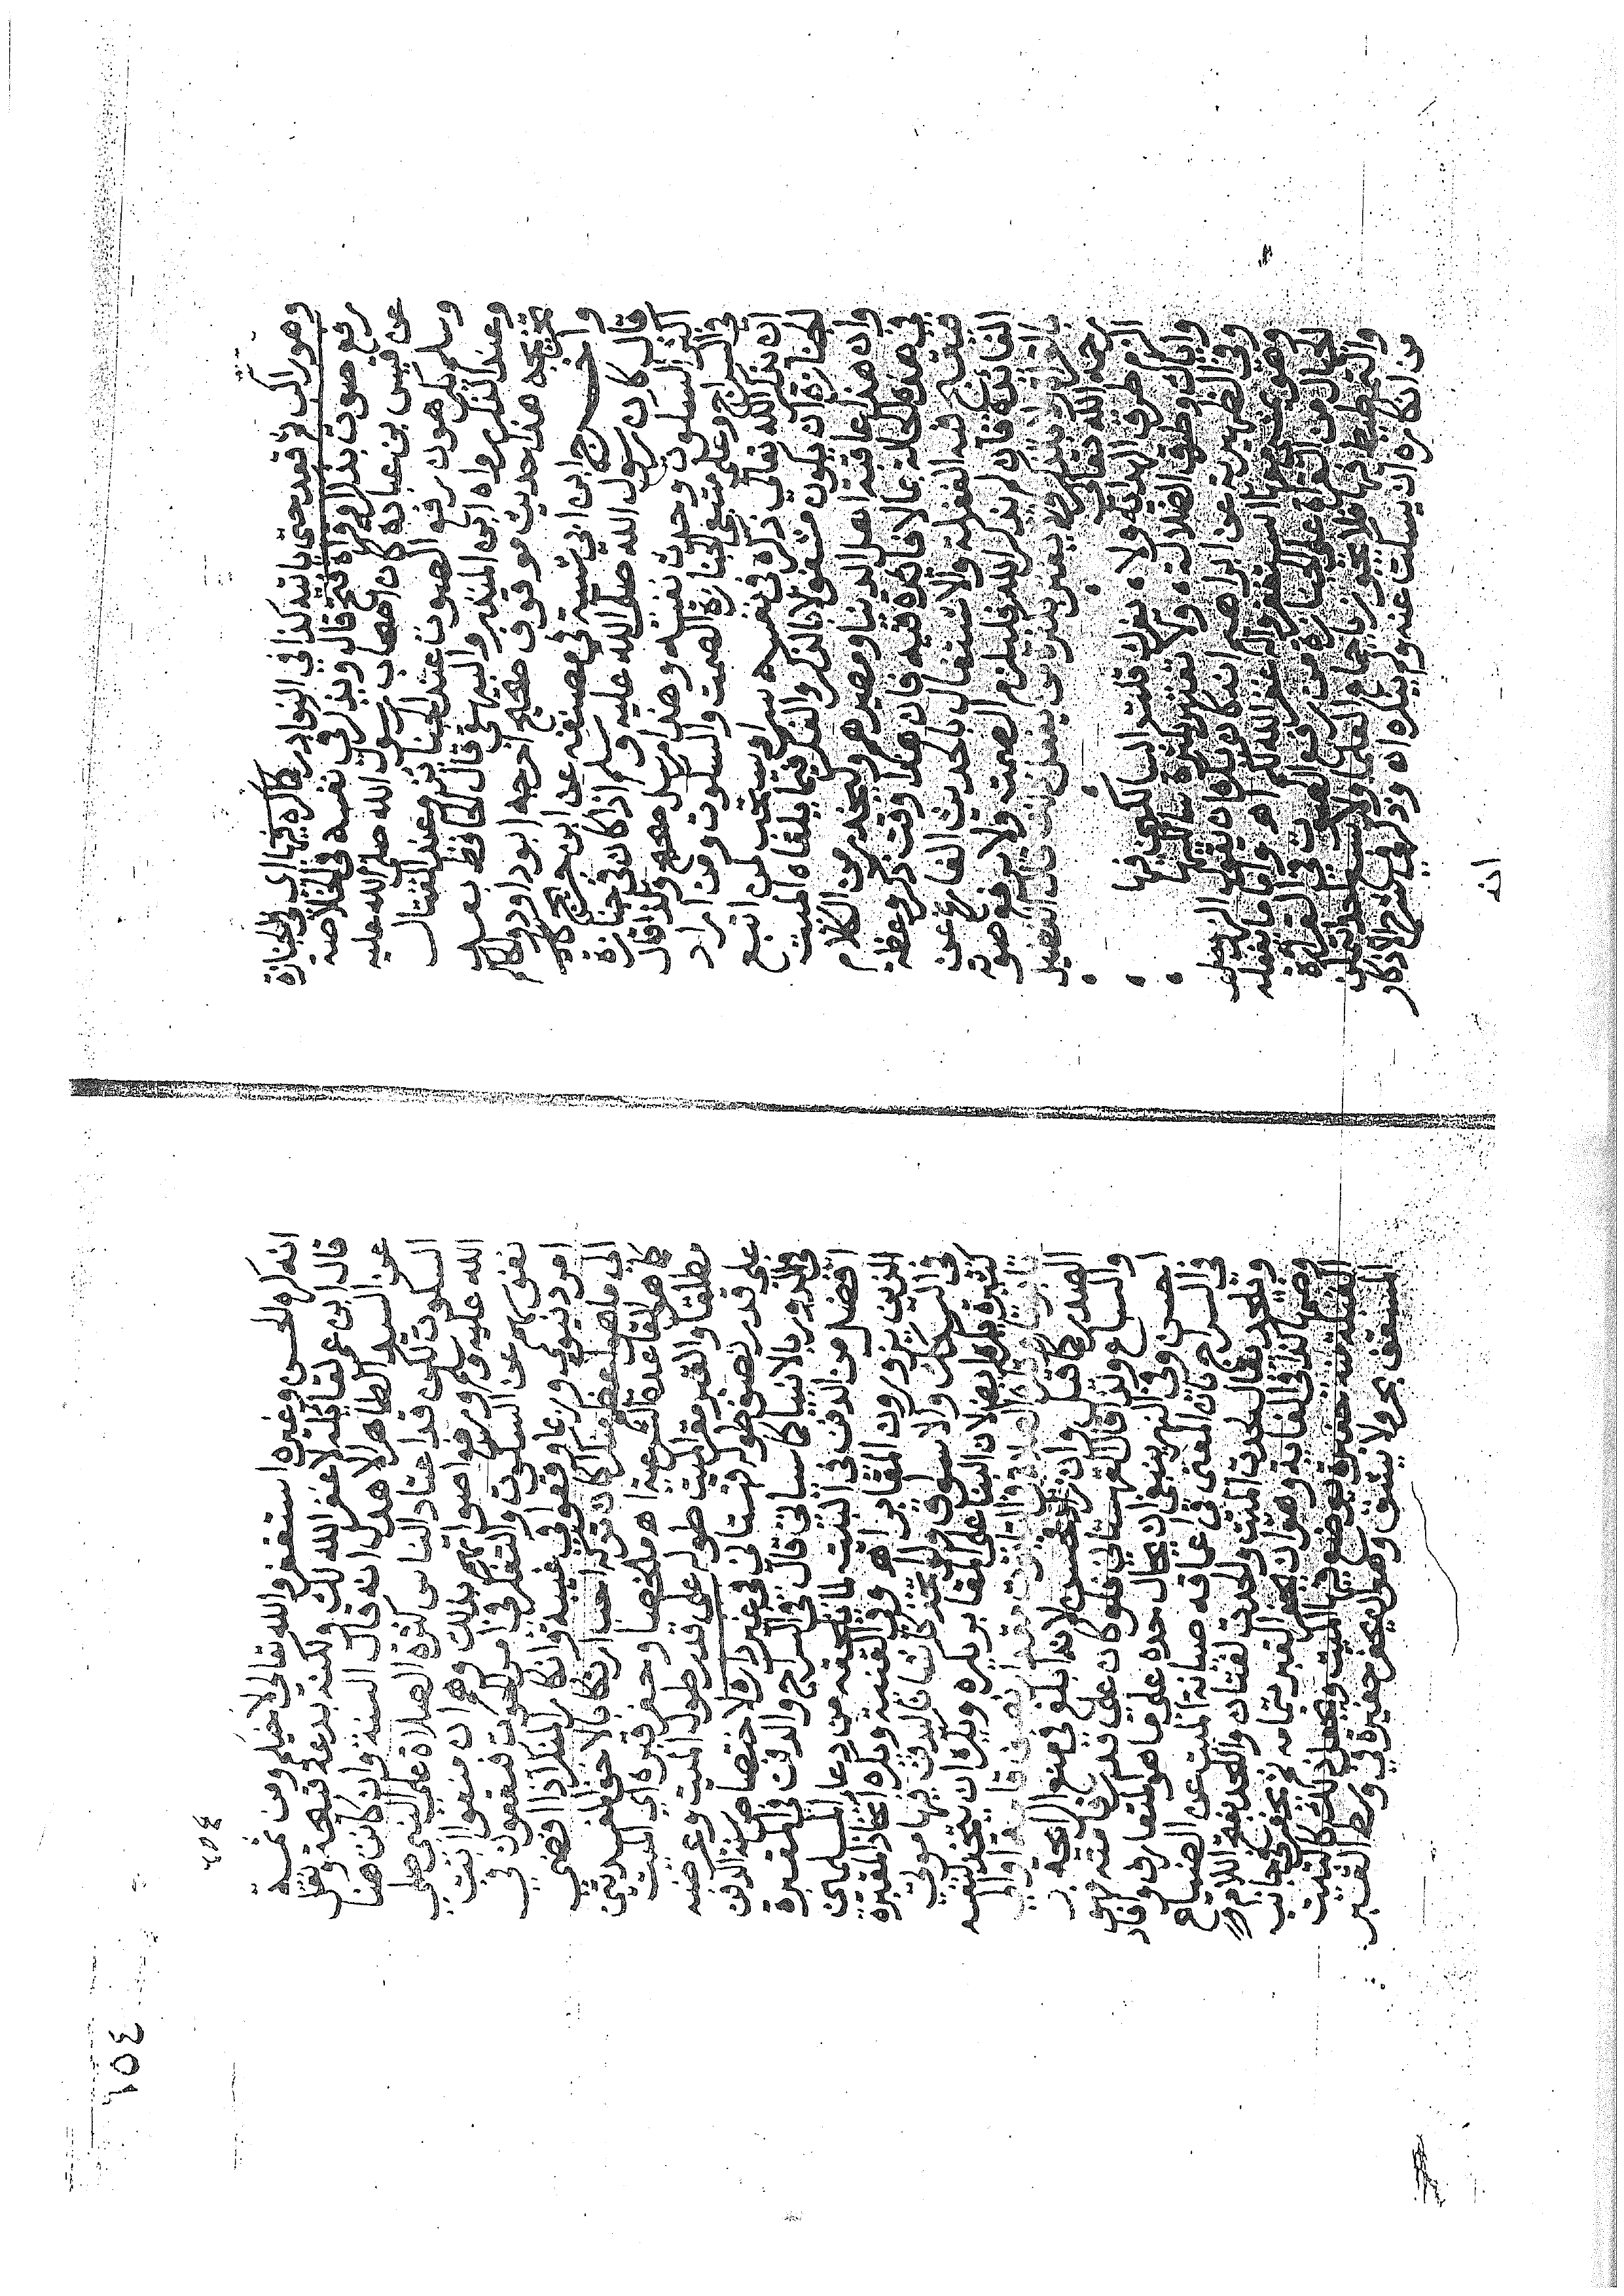 وهو راكب ثم قعد حتى يأتيه كذا في النوادر كاكره في اي في الجنازة
رفع صوت بذكر وقراة فتح قال ويذكر في نفسه في الخلاصة
عن قيس بن عبادة كان اصحاب رسول الله صلى الله عليه
وسلم يكرهون رفع الصوت عند الجنائز وعند القتال
وعند الذكر رواه ابن المنذر والبيهقي قال الحافظ بعد
تخريجه هذا حديث موقوف صحيح اخرجه ابو داود والحاكم
واخرج ابن ابي شيبة في مصنفه عن ابن جريج
قال كان رسول الله صلى الله عليه وسلم اذا كان في جنازة
اكثر السكوت وحدث نفسه وهذا مرسل صحيح ولذا قال
في السراج وعلى متبعي الجنازة الصمت والسكوت ومن اراد
ان يذكر الله تعالى ذكره في نفسه سرا ويستحب لمن اتبع
الجنازة ان يكون مشغولا بالذكر والفكر فيما يلقاه الميت
وان هذا عاقبة اهل الدنيا ومصيرهم وليحذر من الكلام
في هذه الحالة بما لا فائدة فيه فان هذا وقت ذكر وعظة
فيقبح فيه الغفلة والاشتغال بالحديث الفارغ عن
الفائدة فان لم يذكر الله فليلزم الصمت ولا يرفع صوته
بالقراءة ولا بالذكر ولا يغتر بكثرة من يفعل ذلك قال الفضيل
رحمه الله تعالى
الزم طرق الهداية ولا يغرك قلة السالكين فيها
واياك وطرق الضلالة ولا تغتر بكثرة سالكيها
وفي الظهيرية عن ابراهيم انه كان يكره ان يقول الرجل
وهو يمشي معها استغفروا له غفر الله لكم اه واما ما يفعله
الجهال من القراة على الجنازة من رفع الصوت في القراة
والتمطيط فيها فلا يجوز باجماع العلماء ولا يسع احد يقدر
عن انكاره ان يسكت عنه ولم ينكره اه وذكر في شرح الاذكار
انه
٤٥٤
٤٥٤
انه كره الحسن وغيره استغفروا الله تعالى لاخيكم ومن ثمة
قال ابن عمر لقائله لا غفر الله لك ولكنه بدعة قبيحة ونقل
عن السيد الطاهر الاهدل انه قال السنة وان كان هنا
السكوت لكن قد اعتاد الناس كثرة الصلاة على النبي صلى
الله عليه وسلم ورفعوا اصواتهم بذلك وهم ان منعوا ابت
نفوسهم عن السكوت والتفكر في امر الموت فيقعون في
امر دنيوي وربما وقعوا في غيبة وانكار المنكر اذا افضى
الى ما هو اعظم منكرا كان تركه احب ارتكابا لاخف المفسدتين
كما هو القاعدة الشرعية اه ملخصا وحفر قبره اي الميت
مطلقا والقبر مقر الميت طوله على قدر طول الميت وعرضه
على قدر نصف طوله قهستاني في غير داره لاختصاص هذا الدفن
في الدور بالانبيا كما سياتي قال في السراج والدفن في المقبرة
افضل من الدفن في البيت لما يلحقه من دعاء المسلمين
الذين يزورون المقابر اه وفي القنية ويكره اتخاذ المقبرة
في السكك والاسواق ولو اتخذ كاشانا ليدفن فيها موتى
كثيرة يكره ايضا لان البنا على المقابر يكره ويكره ان يتخذ لنفسه
الصدر كما قيل وان زاد فحسن لانه ابلغ في منع الرائحة
والسباع ولذا قال القهستاني فلو كان على قدر قامته فهو
احسن وفي النهر ينبغي ان يحال حده على ما هو المتعارف وافاد
في السراج بان المعنى في اعماقه صيانة الميت عن الضياع
ويلحد يقال لحدت الميت والحدت لغتان واللحد بفتح اللام و
وضمها كذا في الغاية وهو ان يحفر القبر بتمامه ثم يحفر في جانب
القبلة منه حفيرة يوضع فيها الميت ويجعل ذلك كالبيت
المسقف بحر ولا يشق وهو ان يحفر حفيرة في وسط القبر